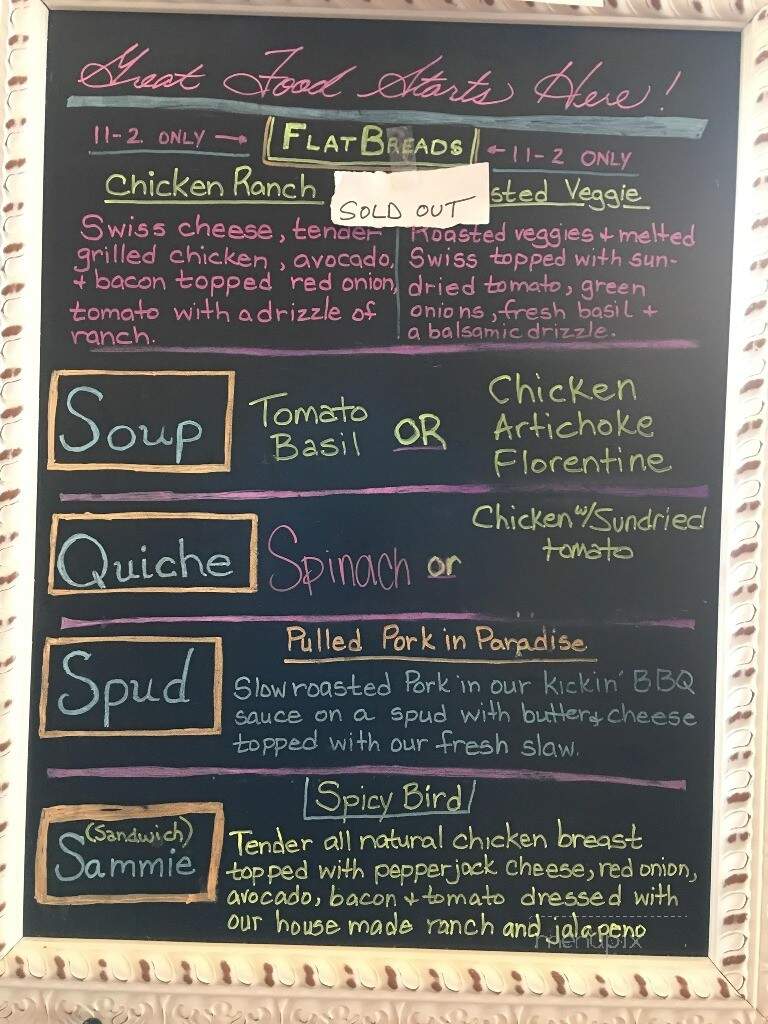 Great Food Starts Here!
11-2 ONLY → FLATBREADS ← 11-2 ONLY
Chicken Ranch
SOLD OUT
sted Veggie
Swiss cheese, tender
grilled chicken, avocado,
+ bacon topped red onion,
tomato with a drizzle of
ranch.
Roasted veggies + melted
Swiss topped with sun-
dried tomato, green
onions, fresh basil +
a balsamic drizzle.
Soup
Tomato
Basil
OR
Chicken
Artichoke
Florentine
Quiche
Spinach or
Chicken w/Sundried
tomato
Spud
Pulled Pork in Paradise
Slow roasted Pork in our kickin' BBQ
sauce on a spud with butter & cheese
topped with our fresh slaw.
(Sandwich)
Sammie
Spicy Bird
Tender all natural chicken breast
topped with pepperjack cheese, red onion,
avocado, bacon + tomato dressed with
our house made ranch and jalapeno
menupix